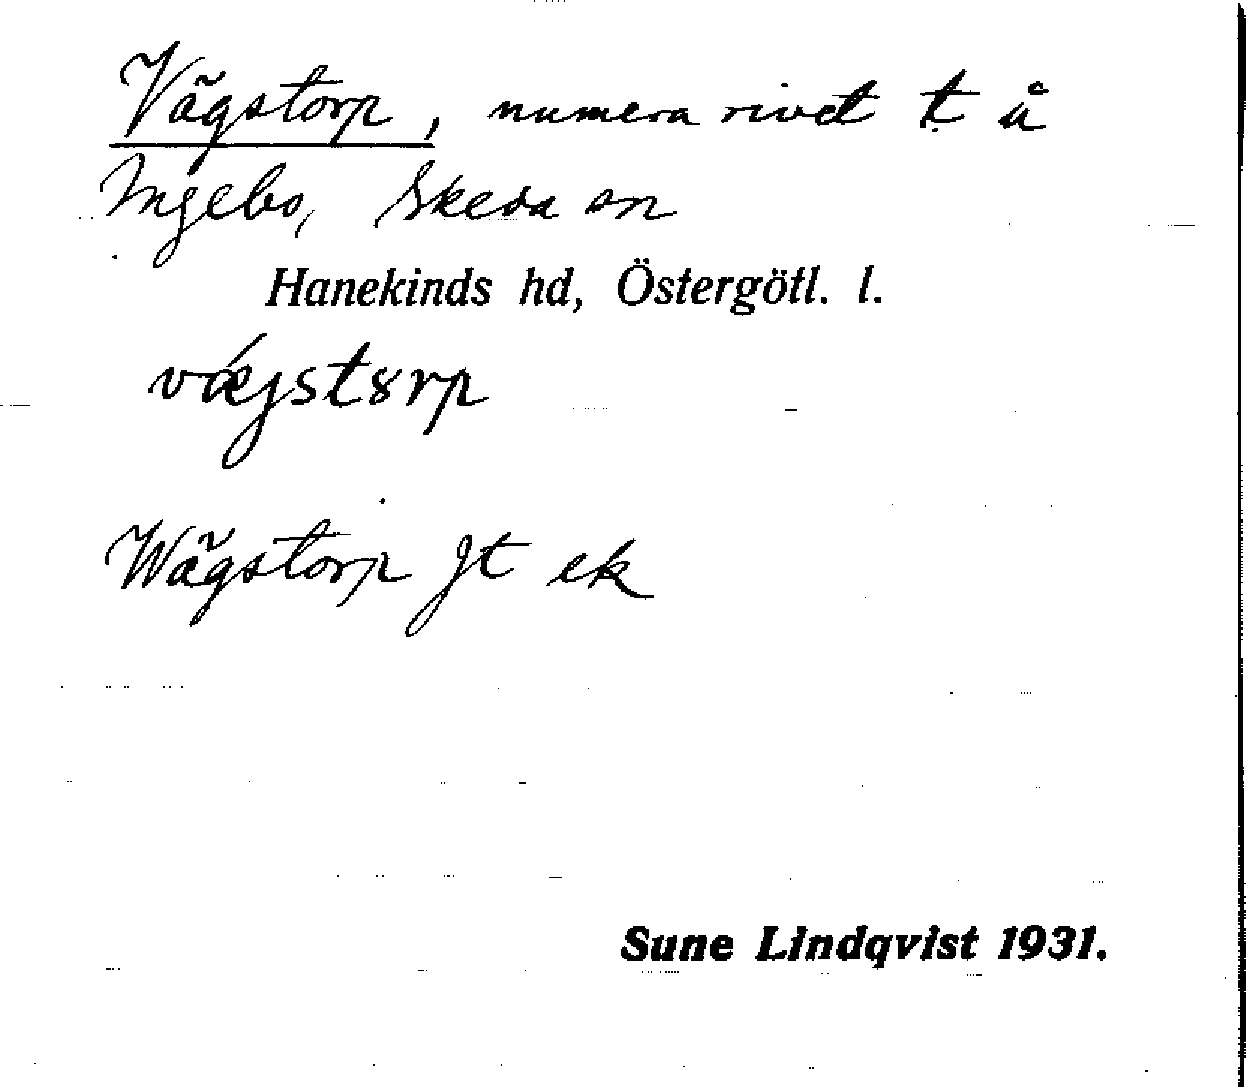 Vägstorp, numera rivet t å
Ingebo, Skeda sn
Hanekinds hd, Östergötl. l.
vǽjstȣrp
Wägstorp Jt ek
Sune Lindqvist 1931.